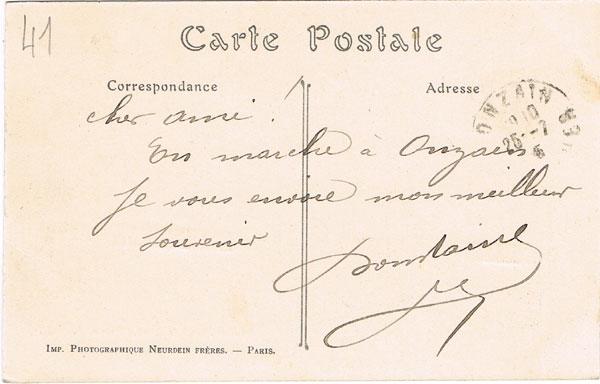 41
Carte Postale
Correspondance
Adresse
ONZAIN
25-7
cher ami !
En marche à Onzain
Je vous envoie mon meilleur
souvenir
IMP. PHOTOGRAPHIQUE NEURDEIN FRÈRES. — PARIS.